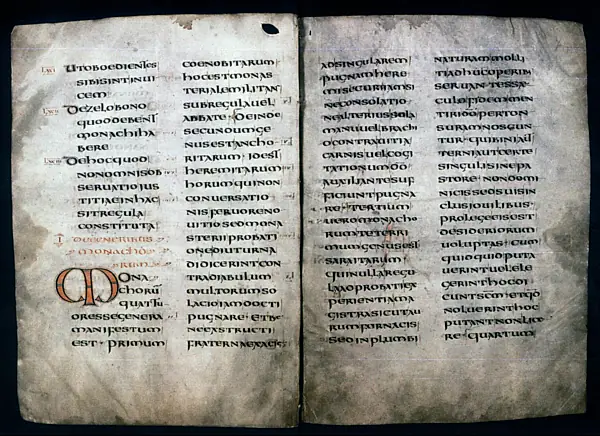 LXXI UTOBOEDIENTES
SIBISINTINUI
CEM
LXXII DEZELOBONO
QUODDEBENT
MONACHIHA
BERE
LXXIII DEHOCQUOD
NONOMNISOB
SERUATIOIUS
TITIAEINHAC
SITREGULA
CONSTITUTA
I DEGENERIBUS
MONACHO
RUM
MONA
CHORŪ
QUATTU
ORESSEGENERA
MANIFESTUM
EST PRIMUM
COENOBITARUM
HOCESTMONAS
TERIALEMILITANS
SUBREGULAUEL
ABBATE DEINDE
SECUNDUMGE
NUSESTANCHO
RITARUM IDEST
HEREMITARUM
HORUMQUINON
CONUERSATIO
NISFERUORENO
UITIOSEDMONA
STERIIPROBATI
ONEDIUTURNA
DIDICERINTCON
TRADIABULUM
MULTORUMSO
LACIOIAMDOCTI
PUGNARE ETBE
NEEXSTRUCTI
FRATERNAEXACIE
ADSINGULAREM
PUGNAMHERE
MISECURIIAMSI
NECONSOLATIO
NEALTERIUSSOLA
MANUUELBRACHI
OCONTRAUITIA
CARNISUELCOGI
TATIONUMDO
AUXILIANTESUF
FICIUNTPUGNA
RE TERTIUM
UEROMONACHO
RUMTETERRI
MUMGENUSEST
SARAITARUM
QUINULLAREGU
LAADPROBATIEX
PERIENTIAMA
GISTRASICUTAU
RUMFORNACIS
SEDINPLUMBI
NATURAMMOLLI
TIADHUCOPERIB
SERUANTESSAE
CULOFIDEMMEN
TIRIDOPERTON
SURAMNOSCUN
TUR QUIBINIAUT
TERNIAUTCERTE
SINGULISINEPA
STORE NONDOMI
NICISSEDSUISIN
CLUSIOUILIBUS
PROLEGEEISEST
DESIDERIORUM
UOLUPTAS CUM
QUICQUIDPUTA
UERINTUELELE
GERINTHOCDI
CUNTSCM ETQD
NOLUERINTHOC
PUTANTNONLICE
RE QUARTUM